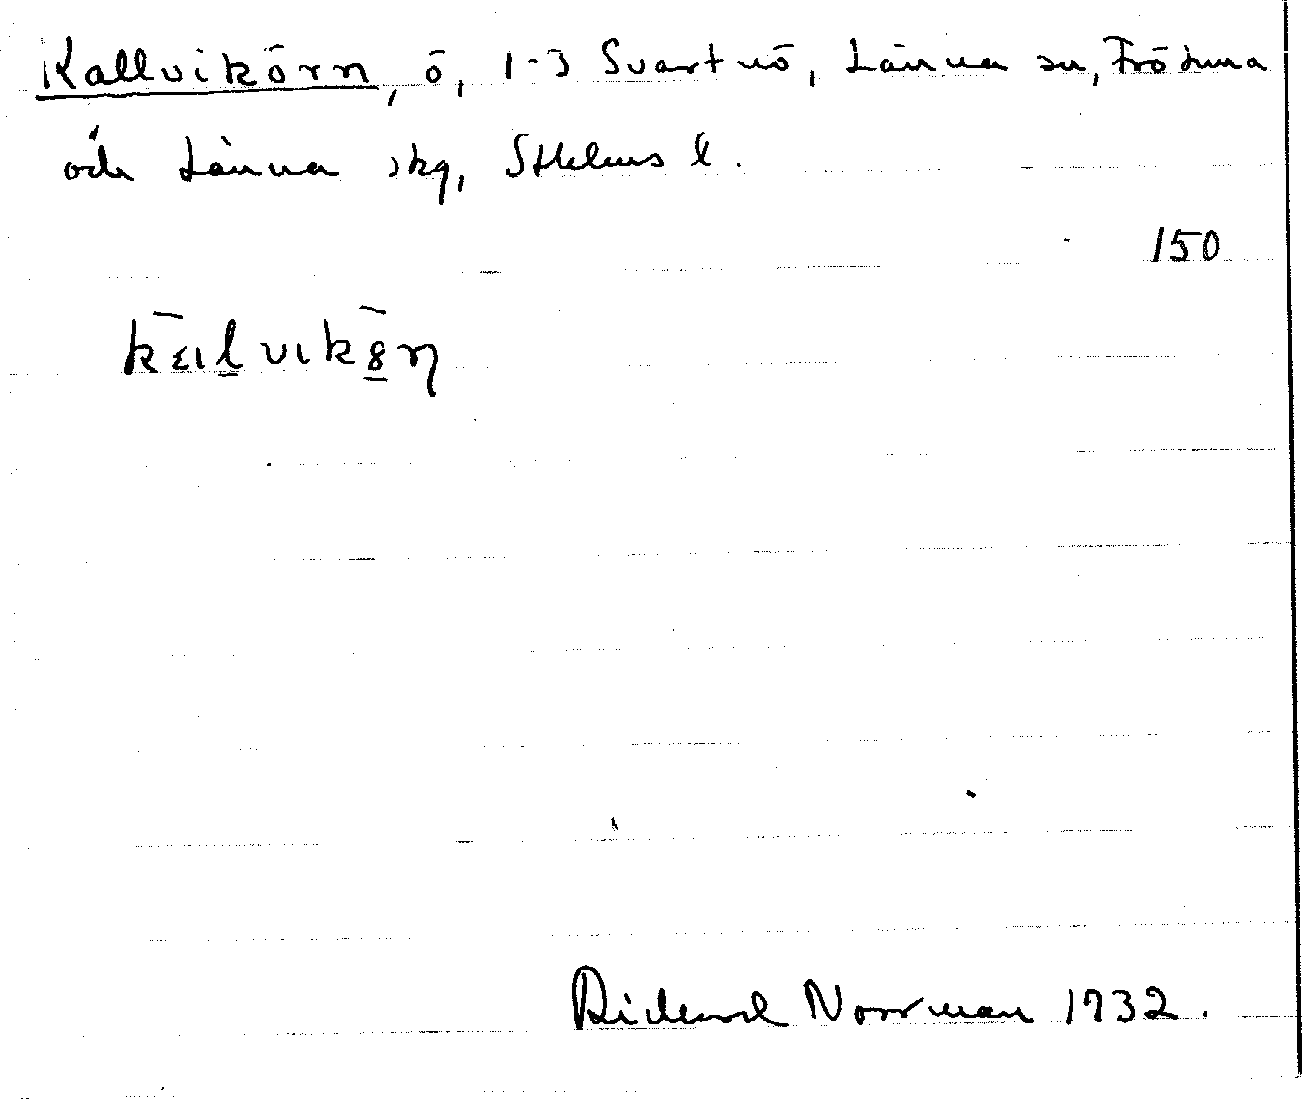 Kallvikörn, ö, 1-3 Svartnö, Länna sn, Frötuna
och Länna skg, Sthlms l.
150
Rickard Norrman 1932.